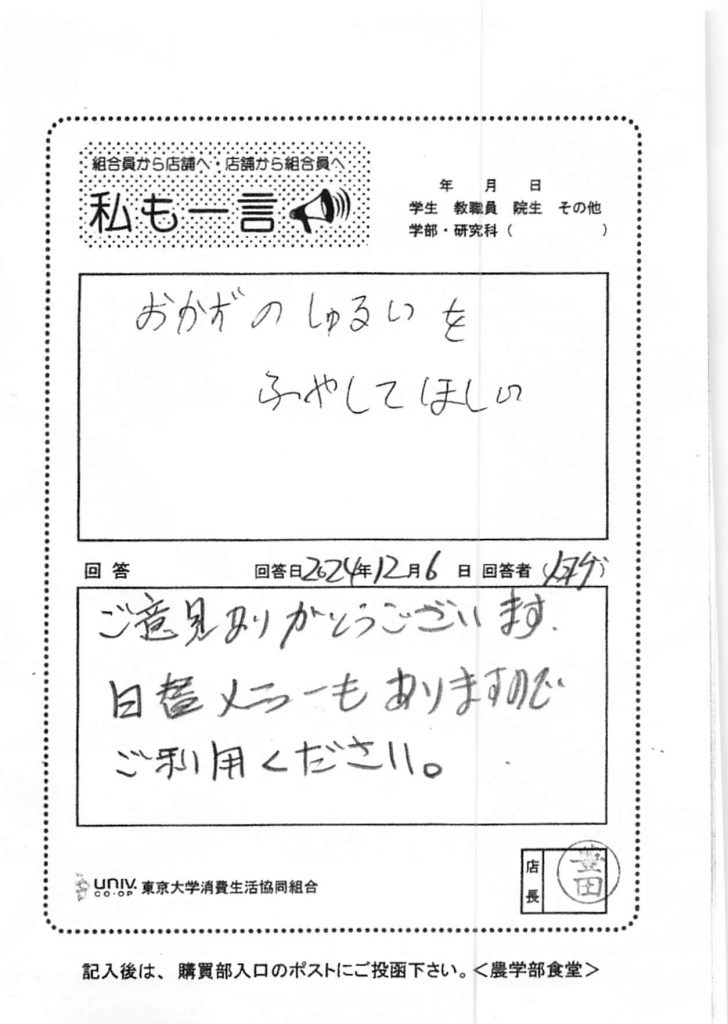 組合員から店舗へ・店舗から組合員へ
私も一言
年 月 日
学生 教職員 院生 その他
学部・研究科( )
おかずのしゅるいを
ふやしてほしい
回答 回答日2024年12月6日 回答者( )
ご意見ありがとうございます.
日替メニューもありますので
ご利用ください。
UNIV. CO-OP 東京大学消費生活協同組合
店長 豊田
記入後は、購買部入口のポストにご投函下さい。<農学部食堂>